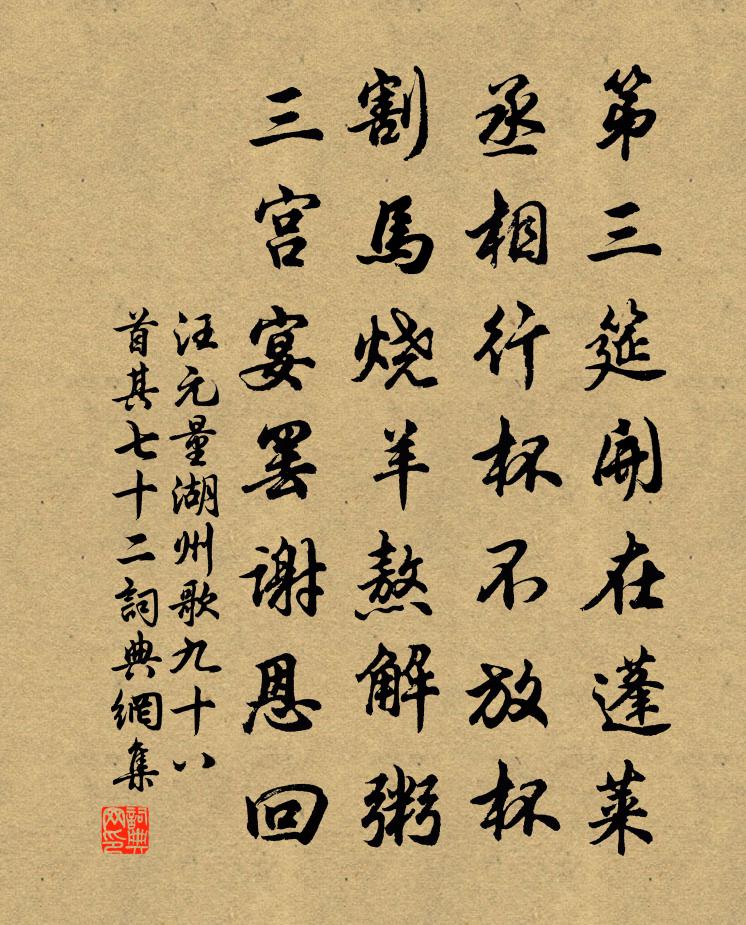 第三筵開在蓬萊
丞相行杯不放杯
割馬燒羊熬解粥
三宮宴罷謝恩回
汪元量湖州歌九十八
首其七十二詞典網集
詞典
网印